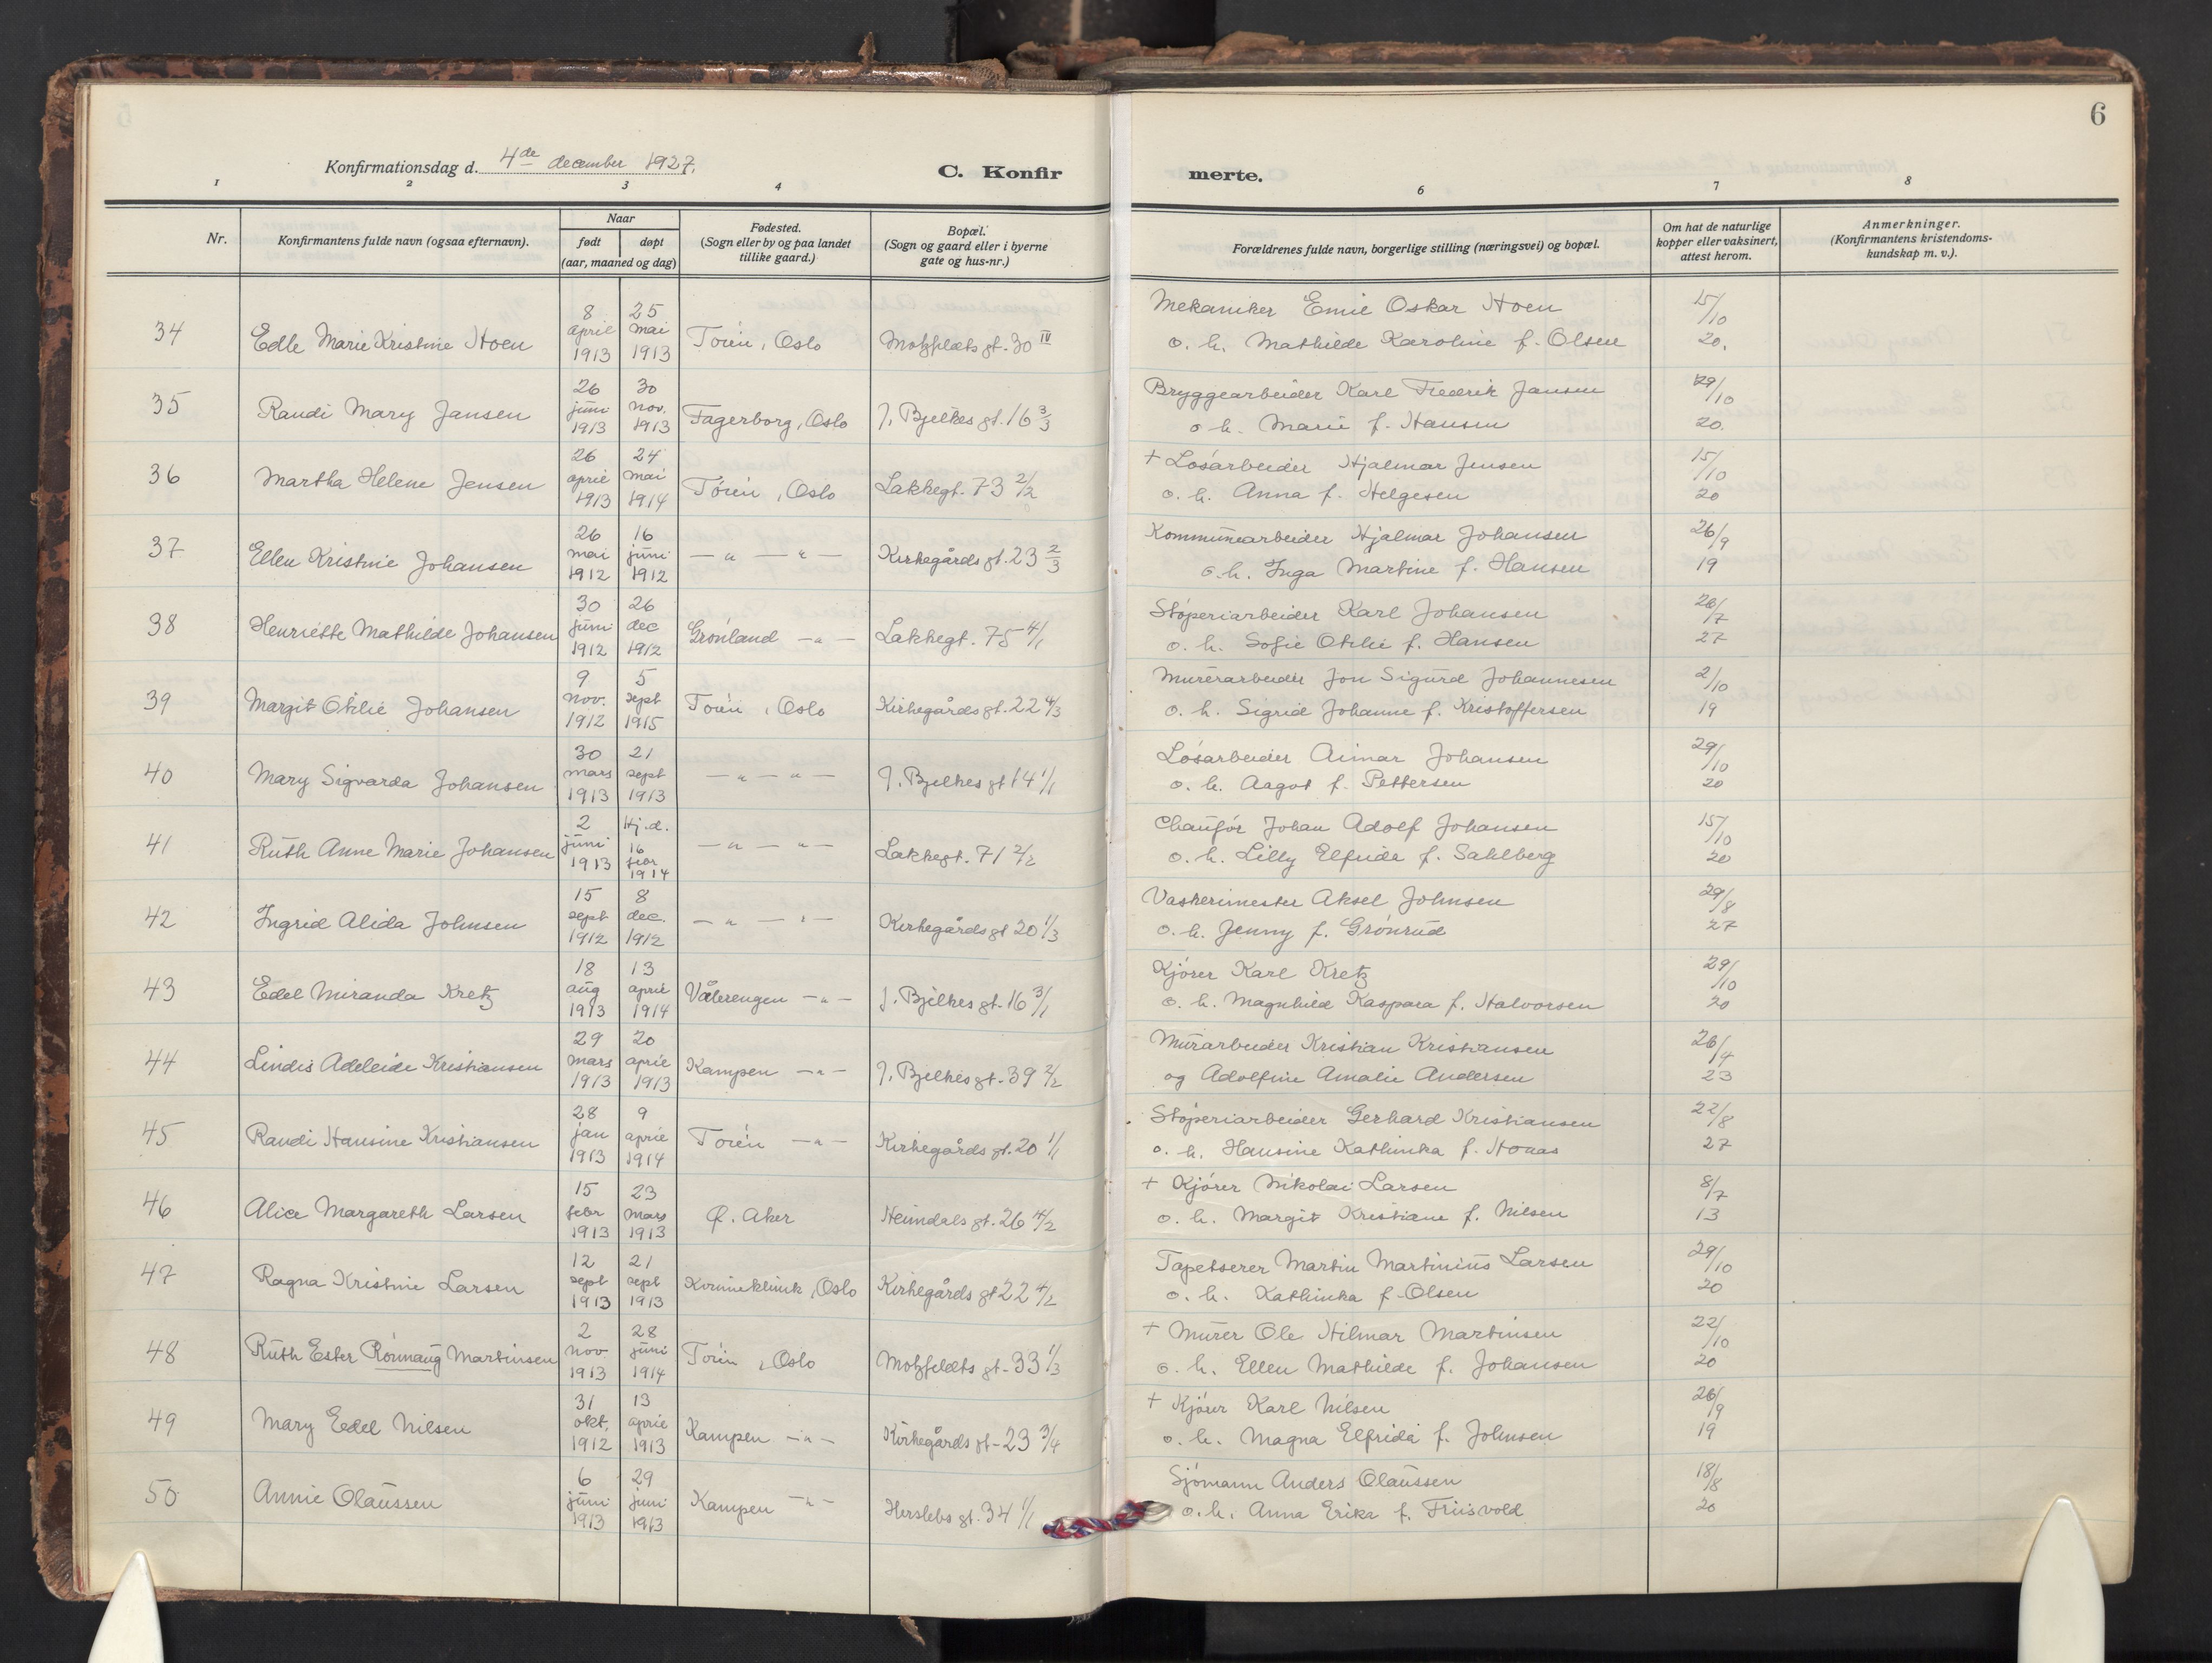 6
Konfirmationsdag d. 4de december 1927.
C. Konfirmerte.
1 2 3 4 6 7 8
Nr.
Konfirmantens fulde navn (ogsaa efternavn).
Naar
født døpt
(aar, maaned og dag)
Fødested.
(Sogn eller by og paa landet
tillike gaard.)
Bopæl.
(Sogn og gaard eller i byerne
gate og hus-nr.)
Forældrenes fulde navn, borgerlige stilling (næringsvei) og bopæl.
Om hat de naturlige
kopper eller vaksinert,
attest herom.
Anmerkninger.
(Konfirmantens kristendoms-
kundskap m. v.).
34 Edle Marie Kristine Hoen 8 april 1913 25 mai 1913 Tøien, Oslo Motzfeldts gt. 30 IV
Mekaniker Emil Oskar Hoen 15/10
o. h. Mathilde Karoline f. Olsen 20.
35 Randi Mary Jansen 26 juni 1913 30 nov. 1913 Fagerborg, Oslo J. Bjelkes gt. 16 3/3
Bryggearbeider Karl Fredrik Jansen 29/10
o. h. Marie f. Hansen 20.
36 Martha Helene Jensen 26 april 1913 24 mai 1914 Tøien, Oslo Lakkegt. 73 2/2
+ Løsarbeider Hjalmar Jensen 15/10
o. h. Anna f. Helgesen 20
37 Ellen Kristine Johansen 26 mai 1912 16 juni 1912 — " — " — Kirkegårds gt. 23 2/3
Kommunearbeider Hjalmar Johansen 26/9
o. h. Inga Martine f. Hansen 19
38 Henriette Mathilde Johansen 30 juni 1912 26 dec 1912 Grønland — " — Lakkegt. 75 4/1
Støperiarbeider Karl Johansen 26/7
o. h. Sofie Otilie f. Hansen 27
39 Margit Otilie Johansen 9 nov. 1912 5 sept 1915 Tøien, Oslo Kirkegårds gt. 22 4/3
Murerarbeider Jon Sigurd Johannesen 2/10
o. h. Sigrid Johanne f. Kristoffersen 19
40 Mary Sigvarda Johansen 30 mars 1913 21 sept 1913 — " — " — J. Bjelkes gt 14 1/1
Løsarbeider Aimar Johansen 29/10
o. h. Aagot f. Pettersen 20
41 Ruth Anne Marie Johansen 2 juni 1913 Hj.d. 16 febr 1914 — " — " — Lakkegt. 71 2/2
Chauffør Johan Adolf Johansen 15/10
o. h. Lilly Elfrida f. Sahlberg 20
42 Ingrid Alida Johnsen 15 sept 1912 8 dec. 1912 — " — " — Kirkegårds gt 20 1/3
Vaskerimester Aksel Johnsen 29/8
o. h. Jenny f. Grønrud 27
43 Edel Miranda Kretz 18 aug 1913 13 april 1914 Vålerengen — " — J. Bjelkes gt. 16 3/1
Kjører Karl Kretz 29/10
o. h. Magnhild Kaspara f. Halvorsen 20
44 Lindis Adeleide Kristiansen 29 mars 1913 20 april 1913 Kampen — " — J. Bjelkes gt. 39 2/2
Murarbeider Kristian Kristiansen 26/4
og Adolfine Amalie Andersen 23
45 Randi Hansine Kristiansen 28 jan 1913 9 april 1914 Tøien — " — Kirkegårds gt. 20 1/1
Støperiarbeider Gerhard Kristiansen 22/8
o. h. Hansine Kathinka f. Honas 27
46 Alice Margareth Larsen 15 febr 1913 23 mars 1913 Ø. Aker Heimdals gt. 26 4/2
+ Kjører Nikolai Larsen 8/7
o. h. Margit Kristiane f. Nilsen 13
47 Ragna Kristine Larsen 12 sept 1913 21 sept 1913 Kvinneklinik, Oslo Kirkegårds gt 22 4/2
Tapetserer Martin Martinius Larsen 29/10
o. h. Kathinka f. Olsen 20
48 Ruth Ester Rønnaug Martinsen 2 nov 1913 28 juni 1914 Tøien, Oslo Motzfeldts gt. 33 1/3
+ Murer Ole Hilmar Martinsen 22/10
o. h. Ellen Mathilde f. Johansen 20
49 Mary Edel Nilsen 31 okt. 1912 13 april 1913 Kampen — " — Kirkegårds gt. 23 3/4
+ Kjører Karl Nilsen 26/9
o. h. Magna Elfrida f. Johnsen 19
50 Annie Olaussen 6 juni 1913 29 juni 1913 Kampen — " — Herslebs gt. 34 1/1
Sjømann Anders Olaussen 18/8
o. h. Anna Erika f. Friisvold 20